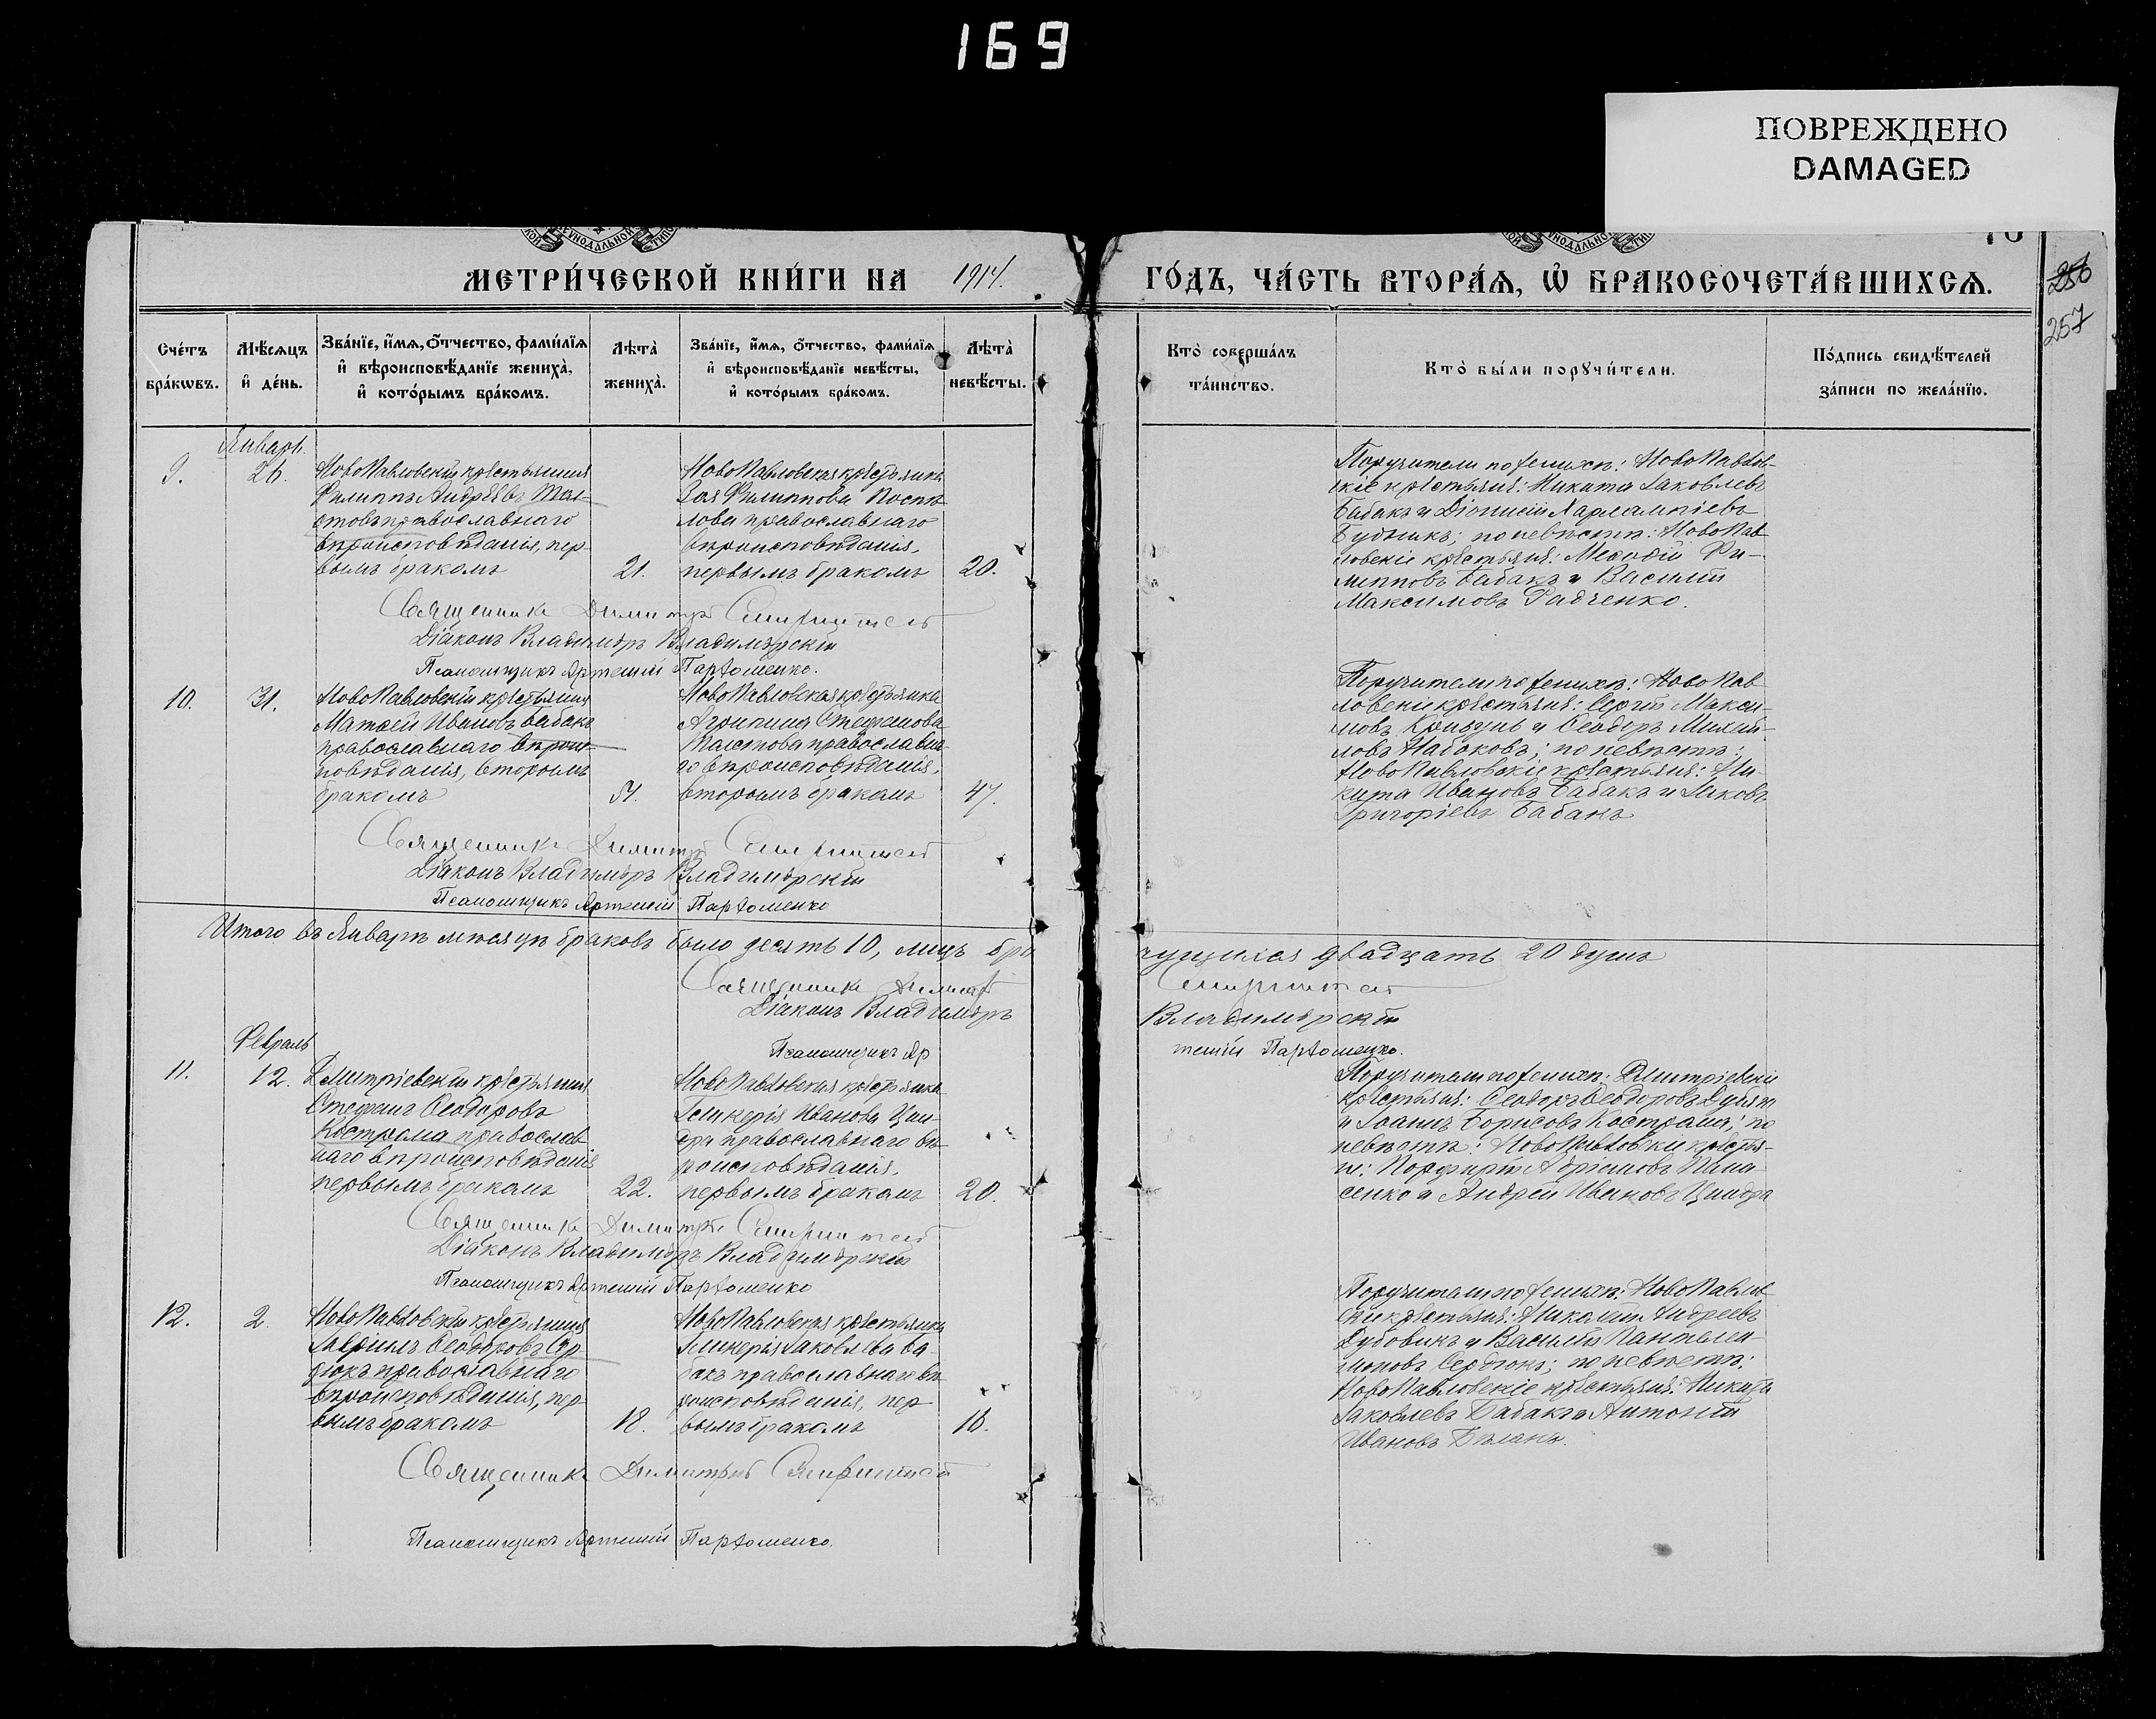 169
ПОВРЕЖДЕНО
DAMAGED
МЕТРИ́ЧЕСКОЙ КНИ́ГИ НА 1914.
ГО́ДЪ, ЧА́СТЬ ВТОРА́Ѧ, Ѽ БРАКОСОЧЕТА́ВШИХСѦ.
256
257
Сче́тъ бра́кѡвъ.
Мѣ́сѧцъ и҆ де́нь.
Зва́нїе, и҆́мѧ, ѻ҆́тчество, фами́лїѧ и҆ вѣроисповѣ́данїе жениха̀, и҆ кото́рымъ бра́комъ.
Лѣ́та̀ жениха̀.
Зва́нїе, и҆́мѧ, ѻ҆́тчество, фами́лїѧ и҆ вѣроисповѣ́данїе невѣ́сты, и҆ кото́рымъ бра́комъ.
Лѣ́та̀ невѣ́сты.
Кто̀ соверша́лъ та́инство.
Кто̀ бы́ли порꙋчи́тели.
По́дпись свидѣ́телей за́писи по жела́нїю.
Январь.
9.
26.
НовоПавловскій крестьянинъ
Филиппъ Андреевъ
православнаго
вѣроисповѣданія, пер-
вымъ бракомъ
21.
НовоПавловская крестьянка
Зоя Филиппова
православнаго
вѣроисповѣданія,
первымъ бракомъ
20.
Поручители по женихѣ: НовоПавлов-
скіе крестьяне: Никита Іаковлевъ
Бабакъ и Діонисій Харлампіевъ
Будникъ; по невѣстѣ: НовоПав-
ловскіе крестьяне: Меѳодій Фи-
липповъ Бабакъ и Василій
Максимовъ Радченко.
Священникъ Димитрій
Діаконъ Владиміръ Владимірскій
Псаломщикъ Артемій Пархоменко.
10.
31.
НовоПавловскій крестьянинъ
Матѳей Ивановъ Бабакъ
православнаго вѣроис-
повѣданія, вторымъ
бракомъ
51.
НовоПавловская крестьянка
Агрипина Стефанова
Толстова православна-
го вѣроисповѣданія,
вторымъ бракомъ
47.
Поручители по женихѣ: НовоПав-
ловскіе крестьяне: Сергій Макси-
мовъ и Ѳеодоръ Михай-
ловъ Набоковъ; по невѣстѣ:
НовоПавловскіе крестьяне: Ни-
кита Ивановъ Бабакъ и Іаковъ
Григоріевъ Бабакъ
Священникъ Димитрій
Діаконъ Владиміръ Владимірскій
Псаломщикъ Артемій Пархоменко
Итого въ Январѣ мѣсяцѣ браковъ было десять 10, лицъ бра
чущихся двадцать 20 душъ
Священникъ Димитрій
Діаконъ Владиміръ Владимірскій
Псаломщикъ Артемій Пархоменко.
Февраль
11.
12.
Дмитріевскій крестьянинъ
Стефанъ Ѳеодоровъ
Кострома православ-
наго вѣроисповѣданія
первымъ бракомъ
22.
НовоПавловская крестьянка
Гликерія Иванова Цин-
дра православнаго вѣ-
роисповѣданія,
первымъ бракомъ
20.
Поручители по женихѣ: Дмитріевскіе
крестьяне: Ѳеодоръ Ѳеодоровъ
и Іоаннъ Борисовъ Кострома; по
невѣстѣ: НовоПавловскіе крестья-
не: Порфирій Адріановъ Пана-
сенко и Андрей Ивановъ Циндра
Священникъ Димитрій
Діаконъ Владиміръ Владимірскій
Псаломщикъ Артемій Пархоменко
12.
2.
НовоПавловскій крестьянинъ
Гавріилъ Ѳеодоровъ Сер-
дюкъ православнаго
вѣроисповѣданія, пер-
вымъ бракомъ
18.
НовоПавловская крестьянка
Гликерія Іаковлева Ба-
бакъ православнаго вѣ-
роисповѣданія, пер-
вымъ бракомъ
16.
Поручители по женихѣ: НовоПавлов-
скіе крестьяне: Николай Андреевъ
Дубовикъ и Василій Пантелеи-
моновъ Сердюкъ; по невѣстѣ:
НовоПавловскіе крестьяне: Никита
Іаковлевъ Бабакъ и Антоній
Ивановъ Бѣланъ.
Священникъ Димитрій
Псаломщикъ Артемій Пархоменко.